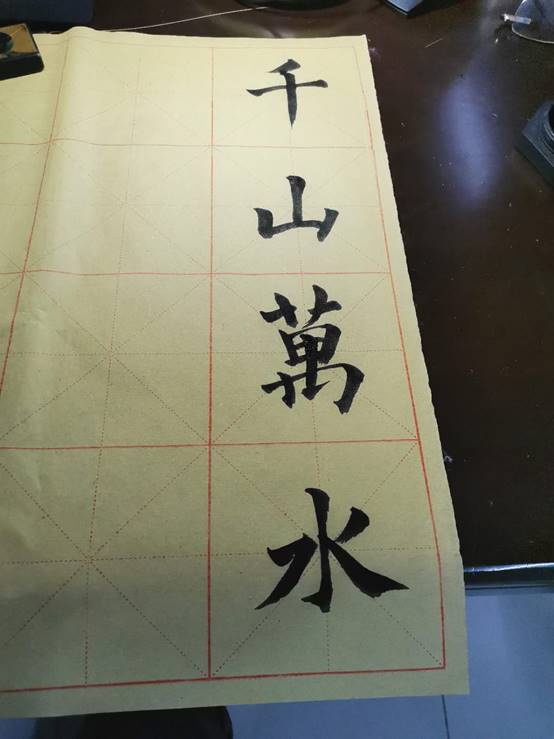 千山萬水